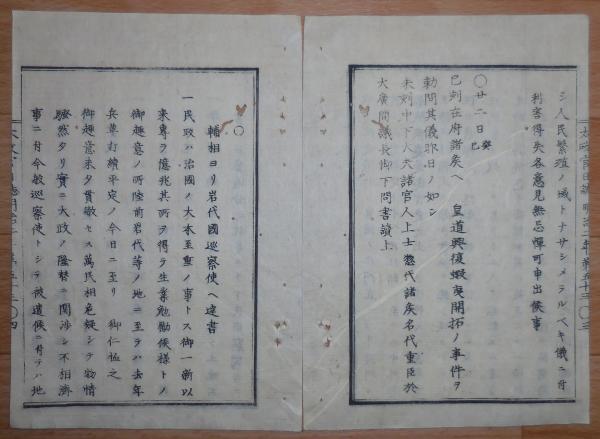 シ人民繁殖ノ域トナサシメラルベキ儀ニ付
利害得失各意見無忌憚可申出候事
〇廿二日癸巳
巳刻在府諸矦ヘ 皇道興復蝦夷開拓ノ事件ヲ
勅問其儀昨日ノ如シ
未刻中下大夫諸官人上士惣代諸矦名代重臣於
大廣間議長御下問書讀上
太政官日誌明治二年第五十三〇三
〇
輔相ヨリ岩代國巡察使ヘ達書
一民政ハ治國ノ大本至重ノ事トス御一新以
来專ラ億兆其所ヲ得テ生業勉勵候様トノ
御趣意ノ所陸前岩代等ノ地ニ至テハ去年
兵革打續平定ノ今日ニ至リ 御仁恤之
御趣意未タ貫徹セス萬民相危疑シテ物情
騒然タリ實ニ大政ノ隆替ニ関渉シ不相濟
事ニ付今般巡察使トシテ被遣候ニ付テハ地